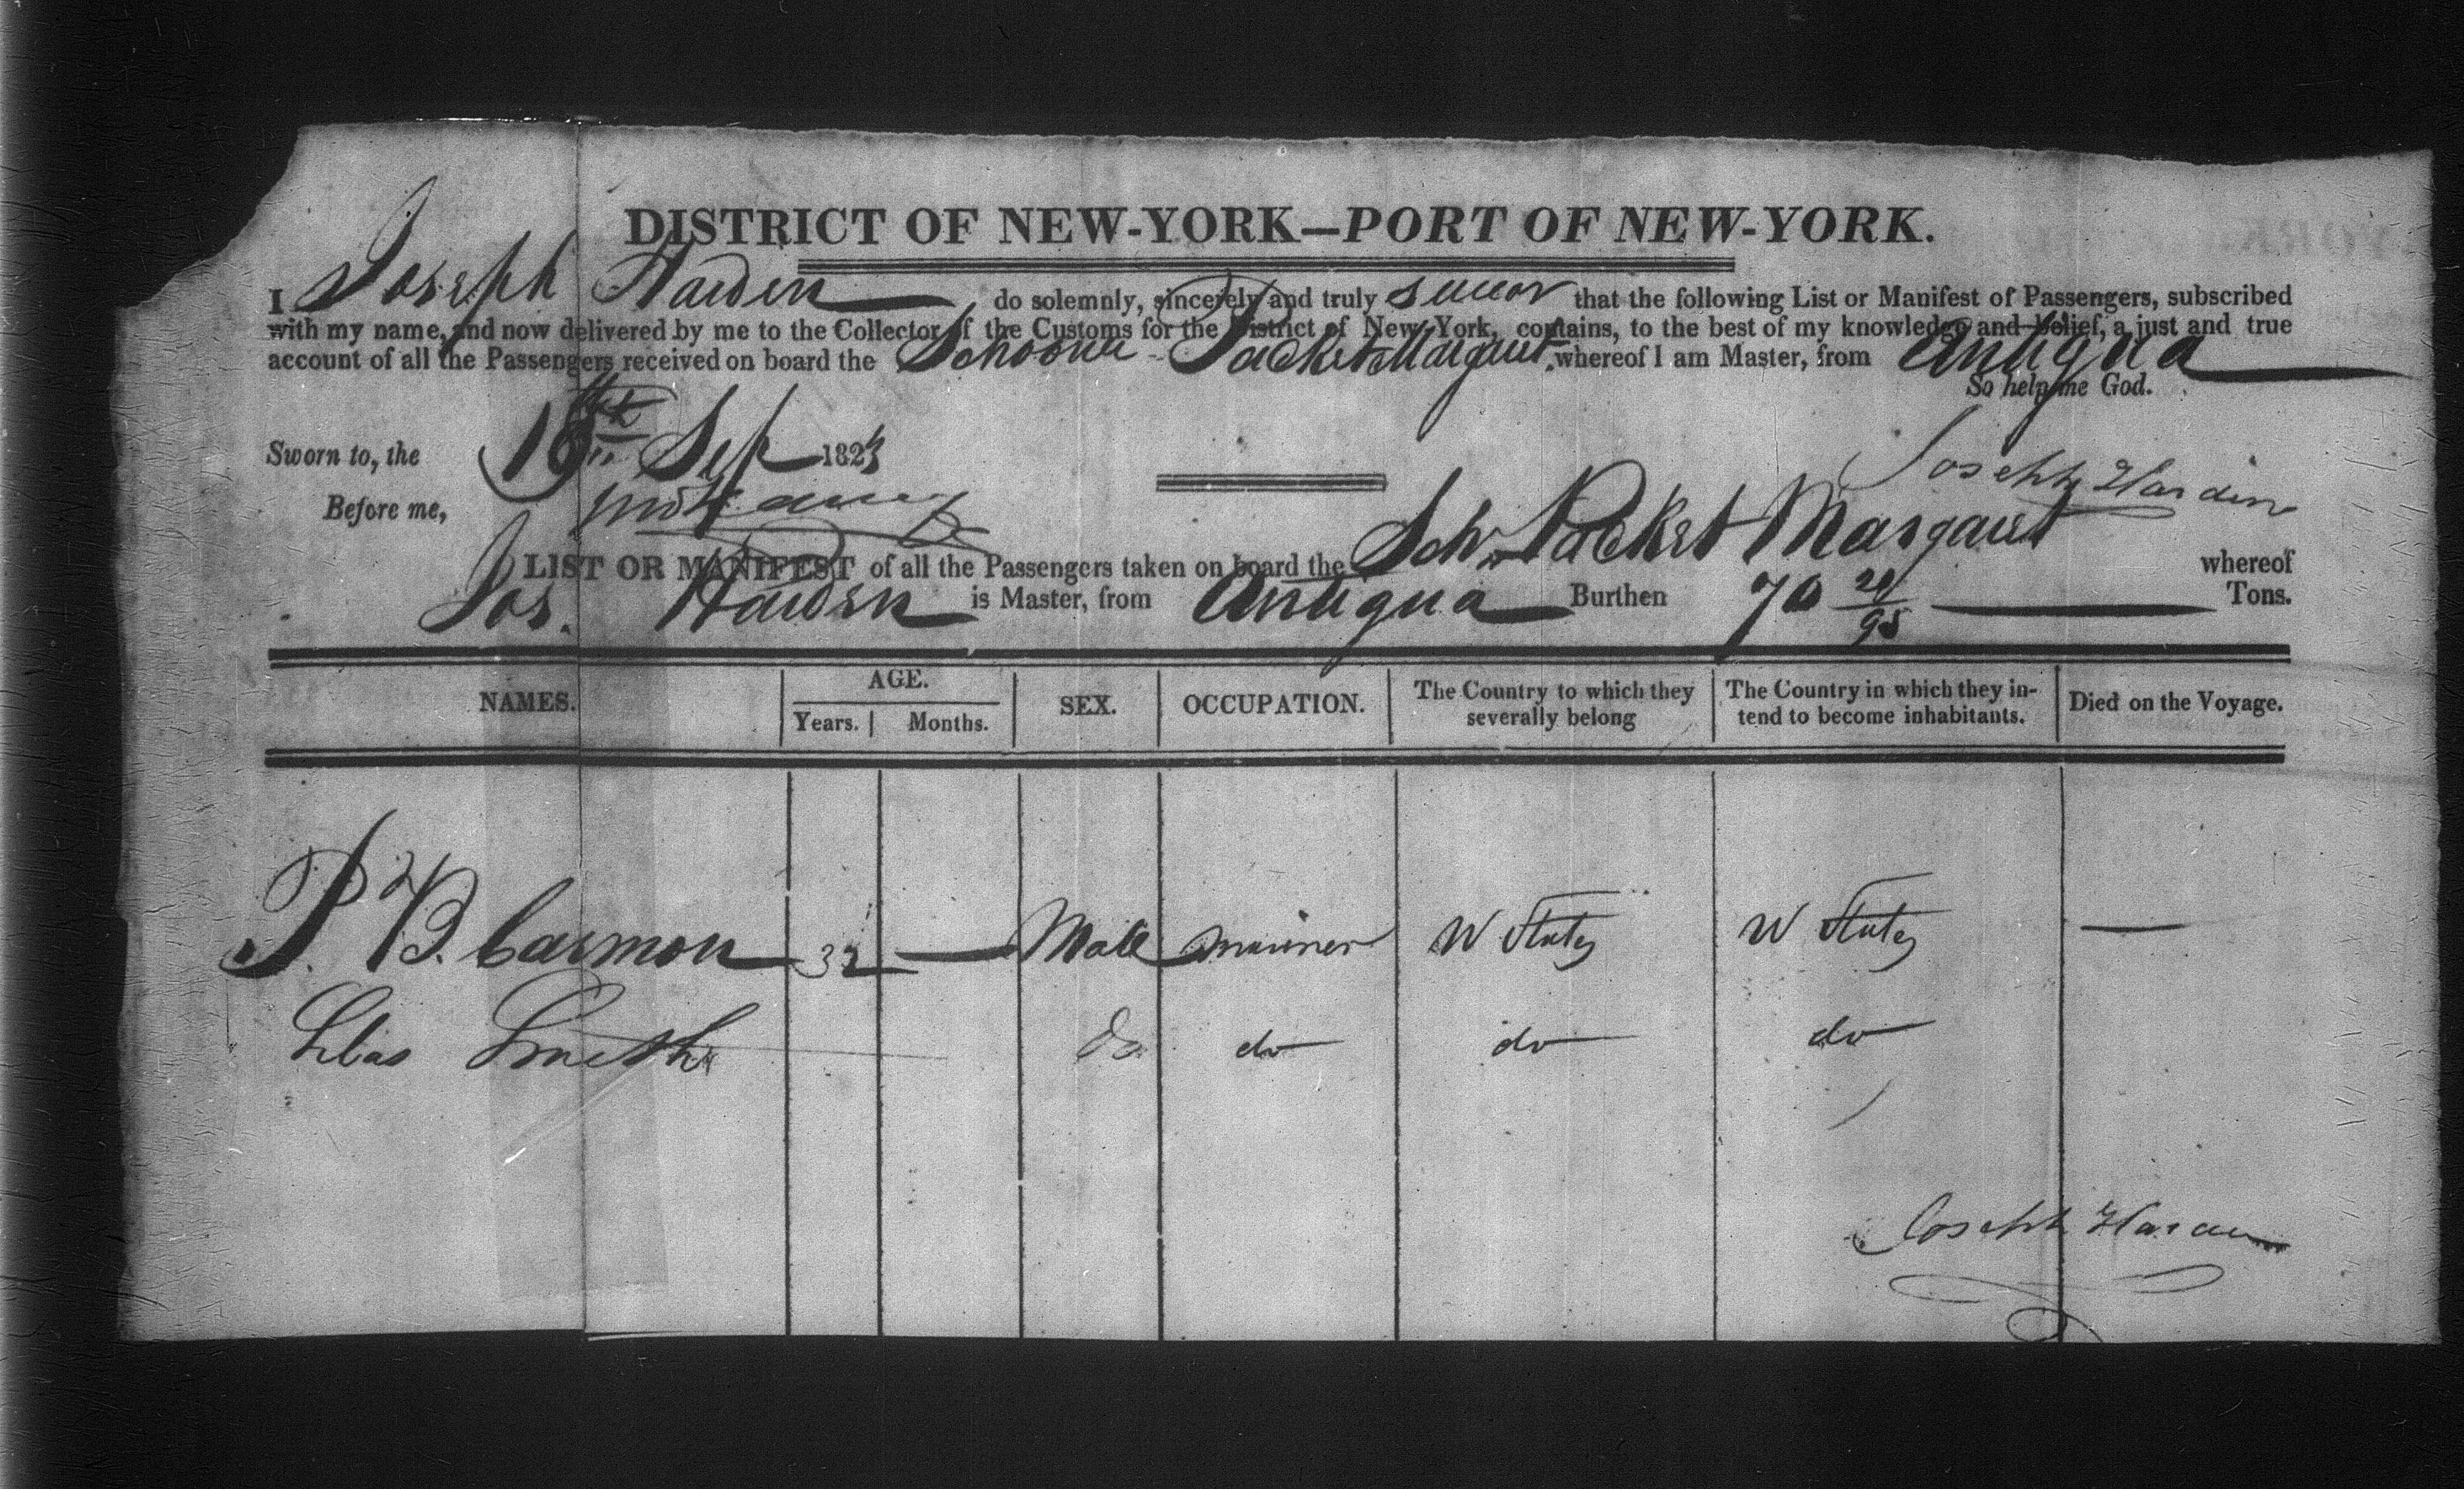 DISTRICT OF NEW-YORK—PORT OF NEW-YORK.
I Joseph Harden do solemnly, sincerely and truly swear that the following List or Manifest of Passengers, subscribed
with my name, and now delivered by me to the Collector of the Customs for the District of New York, contains, to the best of my knowledge and belief, a just and true
account of all the Passengers received on board the Schooner Packet Margaret whereof I am Master, from Antigua
So help me God.
Sworn to, the 18th Sep 1823
Joseph Harden
Before me,
LIST OR MANIFEST of all the Passengers taken on board the Schr. Packet Margaret whereof
Jos. Harden is Master, from Antigua Burthen 70 20/95 Tons.
NAMES. AGE. Years. Months. SEX. OCCUPATION. The Country to which they severally belong The Country in which they intend to become inhabitants. Died on the Voyage.
P. B. Carmon 32 — Male mariner U States U States —
Smith do do do do
Joseph Harden